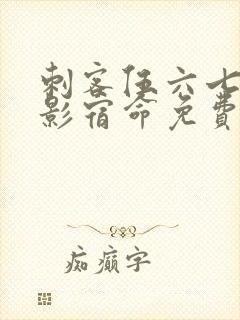 刺客伍六七
影宿命免费
痴癫字